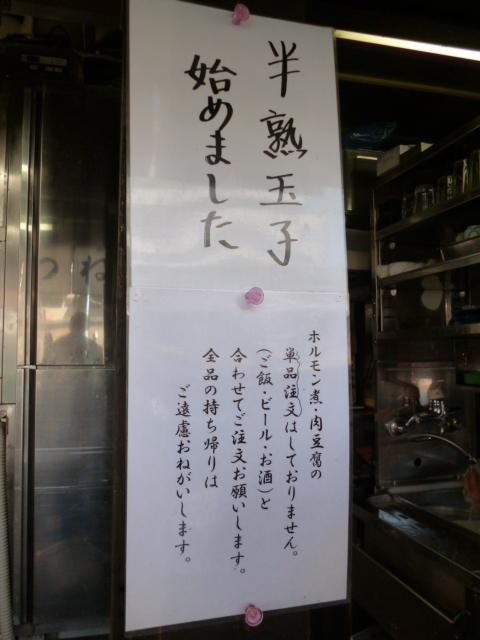 半熟玉子
始めました
ホルモン煮・肉豆腐の
単品注文はしておりません。
(ご飯・ビール・お酒)と
合わせてご注文お願いします。
全品の持ち帰りは
ご遠慮おねがいします。
つね